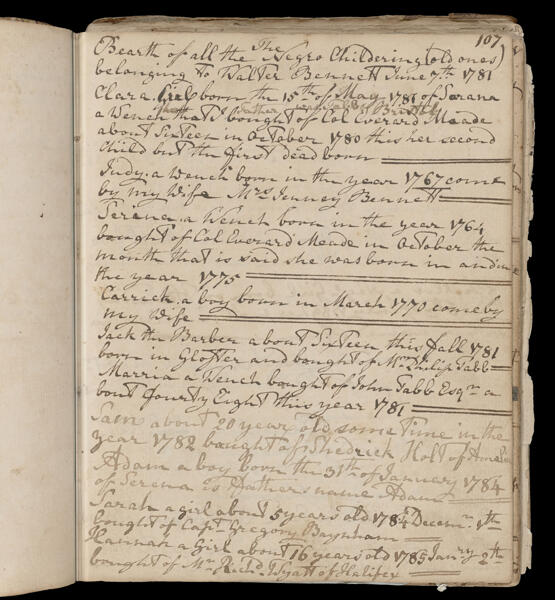 107
Bearth of all the The Negro Childering (old ones)
belonging to Walter Bennett June 7th 1781
Clara. Girl born the 15th of May 1781 of Serana
a Wench that I bought of Col Everard Meade
about Sixteen in October 1780 this her second
Child but the first dead born
Judy. a wench born in the year 1767 come
by my Wife Mrs Jenney Bennett
Serena. a Wench born in the year 1764
bought of Col Everard Meade in October the
month that is said she was born in and in
the year 1775
Carrick. a boy born in March 1770 come by
my Wife
Jack the Barber about Sixteen this fall 1781
born in Gloster and bought of Mr Philip Tabb
Marria a Wench bought of John Tabb Esqr a
bout fourty Eight this year 1781
Sam about 20 years old some time in the
year 1782 bought of Shedrick Holt of Amelia
Adam a boy born the 31th of January 1784
of Serena is Fathers name Adam
Sarah a girl about 5 years old 1784 Decemr 1th
bought of Capt Gregory Baynham
Hannah a Girl about 16 years old 1785 Janry 2th
bought of Mr Richd Wyatt of Halifex